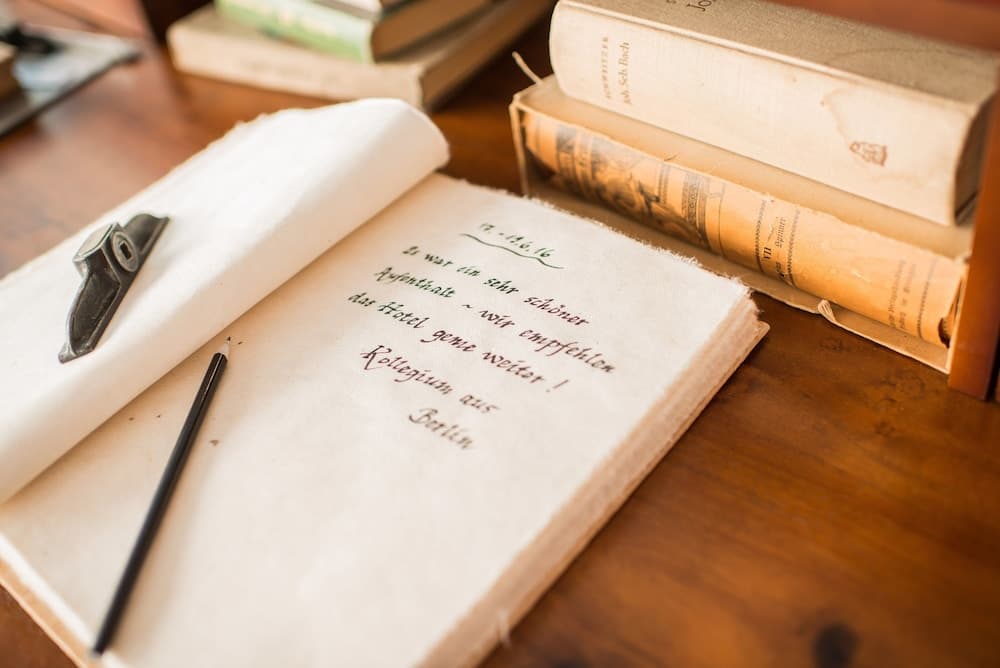 17. - 19.6.16
Es war ein sehr schöner
Aufenthalt ~ wir empfehlen
das Hotel gerne weiter!
Kollegium aus
Berlin
SCHWEITZER
Joh. Seb. Bach
VII